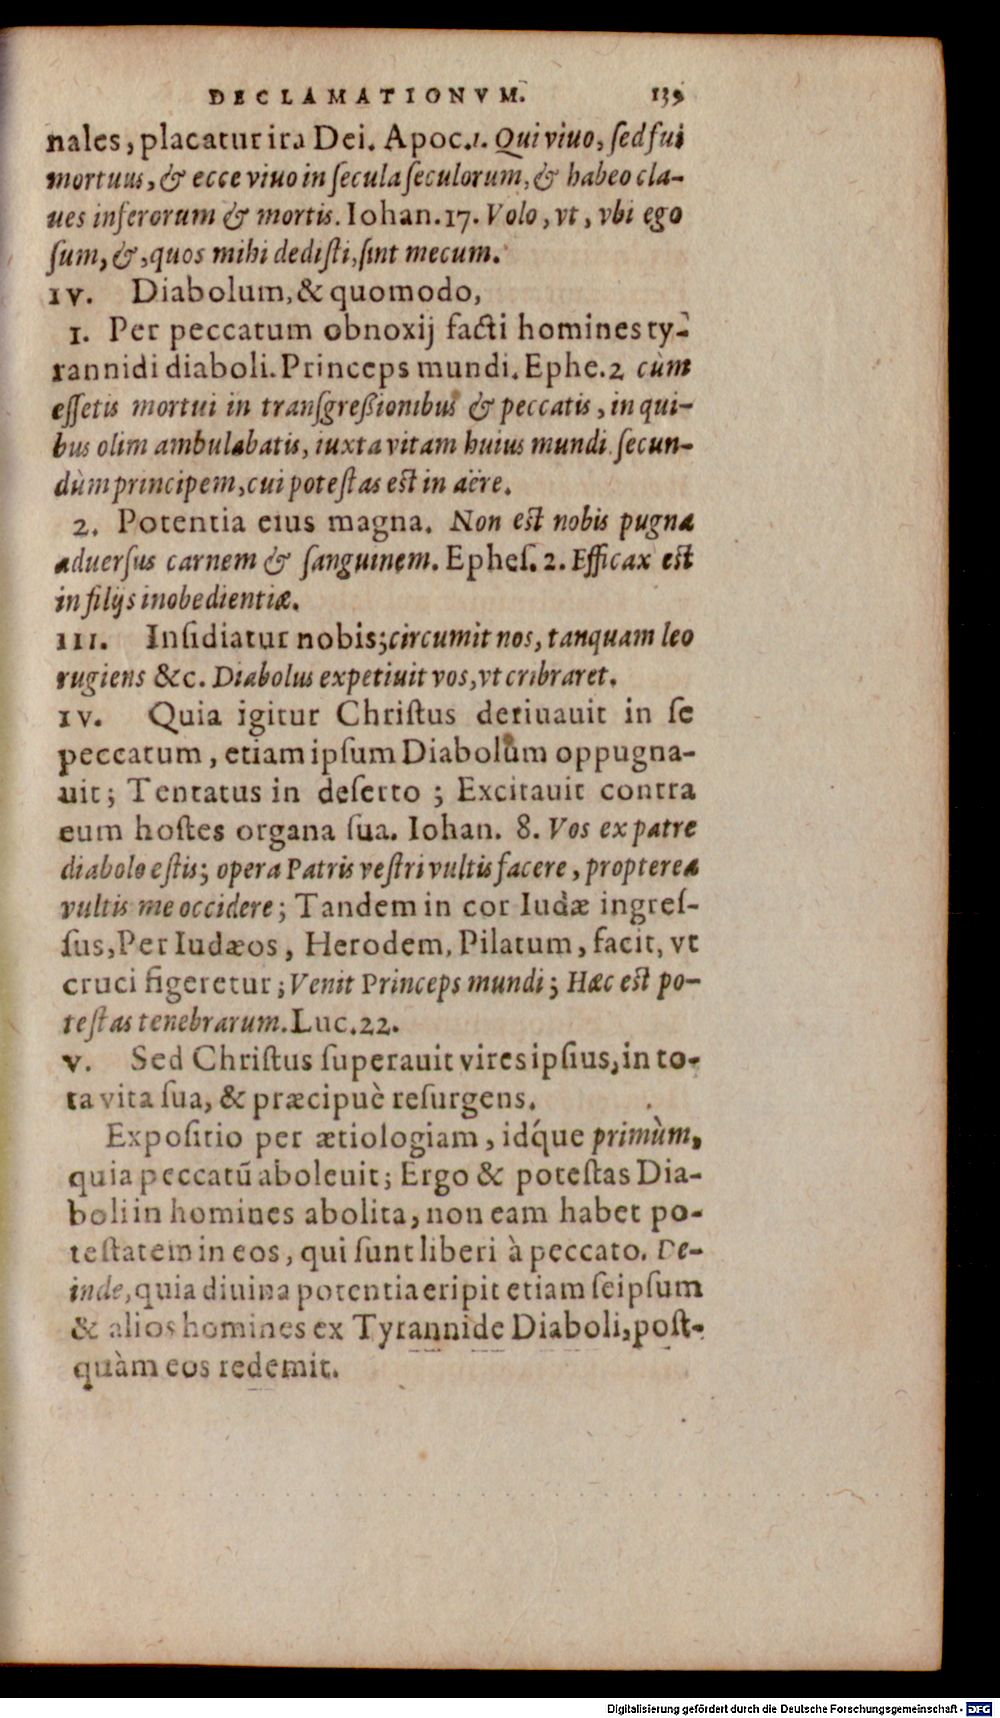 DECLAMATIONVM. 139
nales, placatur ira Dei. Apoc.1. Qui viuo, ſed fui
mortuus, & ecce viuo in ſecula ſeculorum, & habeo cla-
ues inferorum & mortis. Iohan.17. Volo, vt, vbi ego
ſum, &, quos mihi dediſti, ſint mecum.
IV. Diabolum, & quomodo,
1. Per peccatum obnoxij facti homines ty-
rannidi diaboli. Princeps mundi. Ephe.2 cùm
eſſetis mortui in tranſgreßionibus & peccatis, in qui-
bus olim ambulabatis, iuxta vitam huius mundi. ſecun-
dùm principem, cui poteſtas eſt in aëre.
2. Potentia eius magna. Non eſt nobis pugna
aduerſus carnem & ſanguinem. Epheſ. 2. Efficax eſt
in filijs inobedientiæ.
III. Inſidiatur nobis; circumit nos, tanquam leo
rugiens &c. Diabolus expetiuit vos, vt cribraret.
IV. Quia igitur Chriſtus deriuauit in ſe
peccatum, etiam ipſum Diabolum oppugna-
uit; Tentatus in deſerto; Excitauit contra
eum hoſtes organa ſua. Iohan. 8. Vos ex patre
diabolo eſtis; opera Patris veſtri vultis facere, propterea
vultis me occidere; Tandem in cor Iudæ ingreſ-
ſus, Per Iudæos, Herodem, Pilatum, facit, vt
cruci figeretur; Venit Princeps mundi; Hæc eſt po-
teſtas tenebrarum. Luc.22.
V. Sed Chriſtus ſuperauit vires ipſius, in to-
ta vita ſua, & præcipuè reſurgens.
Expoſitio per ætiologiam, idq́ue primùm,
quia peccatū aboleuit; Ergo & poteſtas Dia-
boli in homines abolita, non eam habet po-
teſtatem in eos, qui ſunt liberi à peccato. De-
inde, quia diuina potentia eripit etiam ſeipſum
& alios homines ex Tyrannide Diaboli, poſt-
quàm eos redemit.
Digitalisierung gefördert durch die Deutsche Forschungsgemeinschaft - DFG